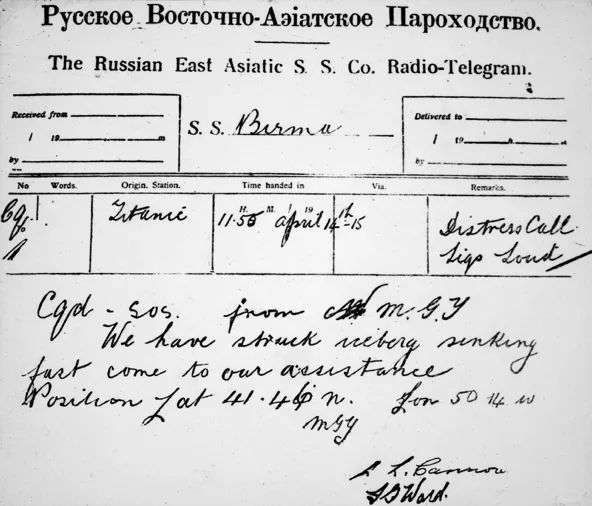 Русское Восточно-Азіатское Пароходство.
The Russian East Asiatic S. S. Co. Radio-Telegram.
Received from
1 19 m
by
S. S. Birma
Delivered to
1 19 m
by
No Words. Origin. Station. Time handed in Via. Remarks.
Cqd Titanic 11.50 H. M. April 14th-15 19 Distress Call
Sigs Loud
Cqd - SOS. from M.G.Y
We have struck iceberg sinking
fast come to our assistance
Position Lat 41.46 n. Lon 50 14 w
MGY
L. Cannon
Ward.